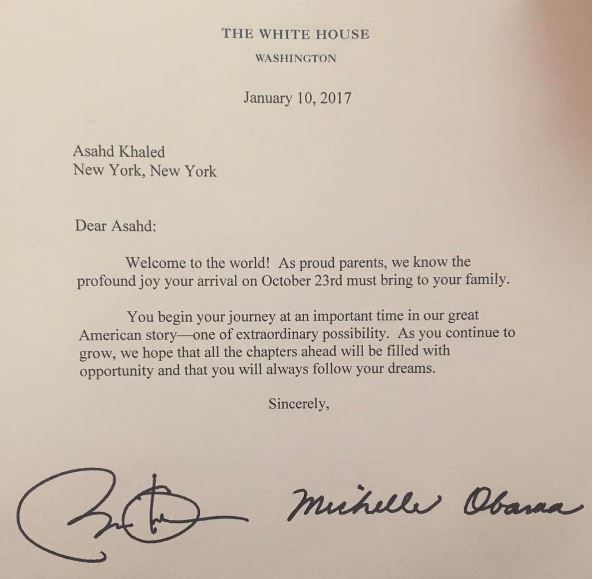 THE WHITE HOUSE
WASHINGTON
January 10, 2017
Asahd Khaled
New York, New York
Dear Asahd:
Welcome to the world! As proud parents, we know the
profound joy your arrival on October 23rd must bring to your family.
You begin your journey at an important time in our great
American story—one of extraordinary possibility. As you continue to
grow, we hope that all the chapters ahead will be filled with
opportunity and that you will always follow your dreams.
Sincerely,
Michelle Obama